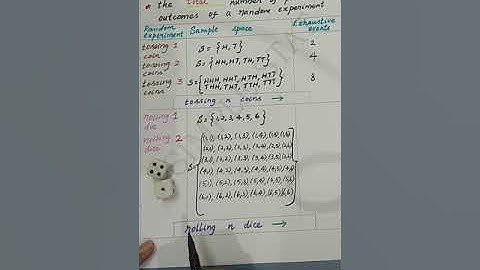 * the Total number of
outcomes of a random experiment
Random experiment Sample space Exhaustive events
tossing 1 coin S = {H, T} 2
tossing 2 coins S = {HH, HT, TH, TT} 4
tossing 3 coins S = {HHH, HHT, HTH, HTT
THH, THT, TTH, TTT} 8
tossing n coins →
rolling 1 die S = {1, 2, 3, 4, 5, 6}
rolling 2 dice
S=
(1,1), (1,2), (1,3), (1,4), (1,5), (1,6)
(2,1), (2,2), (2,3), (2,4), (2,5), (2,6)
(3,1), (3,2), (3,3), (3,4), (3,5), (3,6)
(4,1), (4,2), (4,3), (4,4), (4,5), (4,6)
(5,1), (5,2), (5,3), (5,4), (5,5), (5,6)
(6,1), (6,2), (6,3), (6,4), (6,5), (6,6)
rolling n dice →